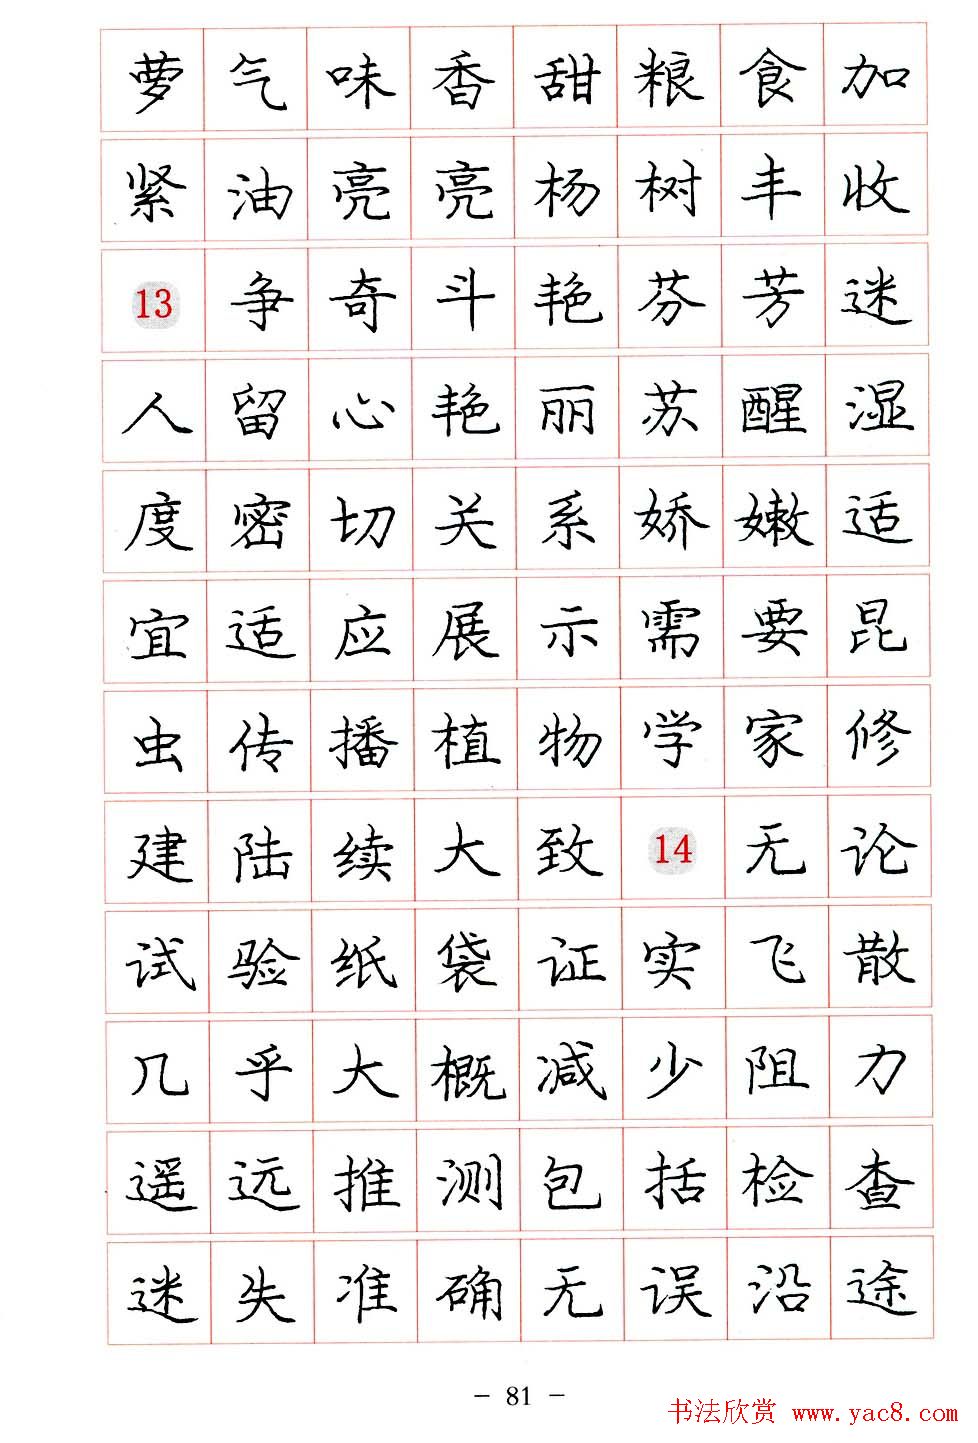 萝气味香甜粮食加
紧油亮亮杨树丰收
13争奇斗艳芬芳迷
人留心艳丽苏醒湿
度密切关系娇嫩适
宜适应展示需要昆
虫传播植物学家修
建陆续大致14无论
试验纸袋证实飞散
几乎大概减少阻力
遥远推测包括检查
迷失准确无误沿途
- 81 -
书法欣赏 www.yac8.com